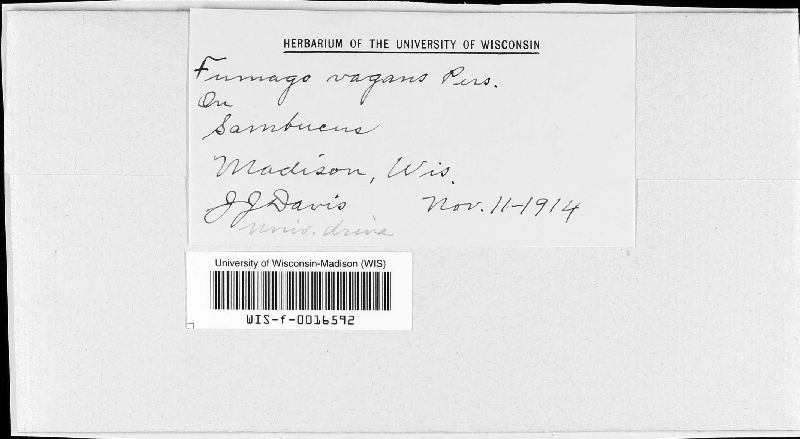 HERBARIUM OF THE UNIVERSITY OF WISCONSIN
Fumago vagans Pers.
On
Sambucus
Madison, Wis.
J J Davis Nov. 11-1914
Univ. drive
University of Wisconsin-Madison (WIS)
WIS-f-0016592